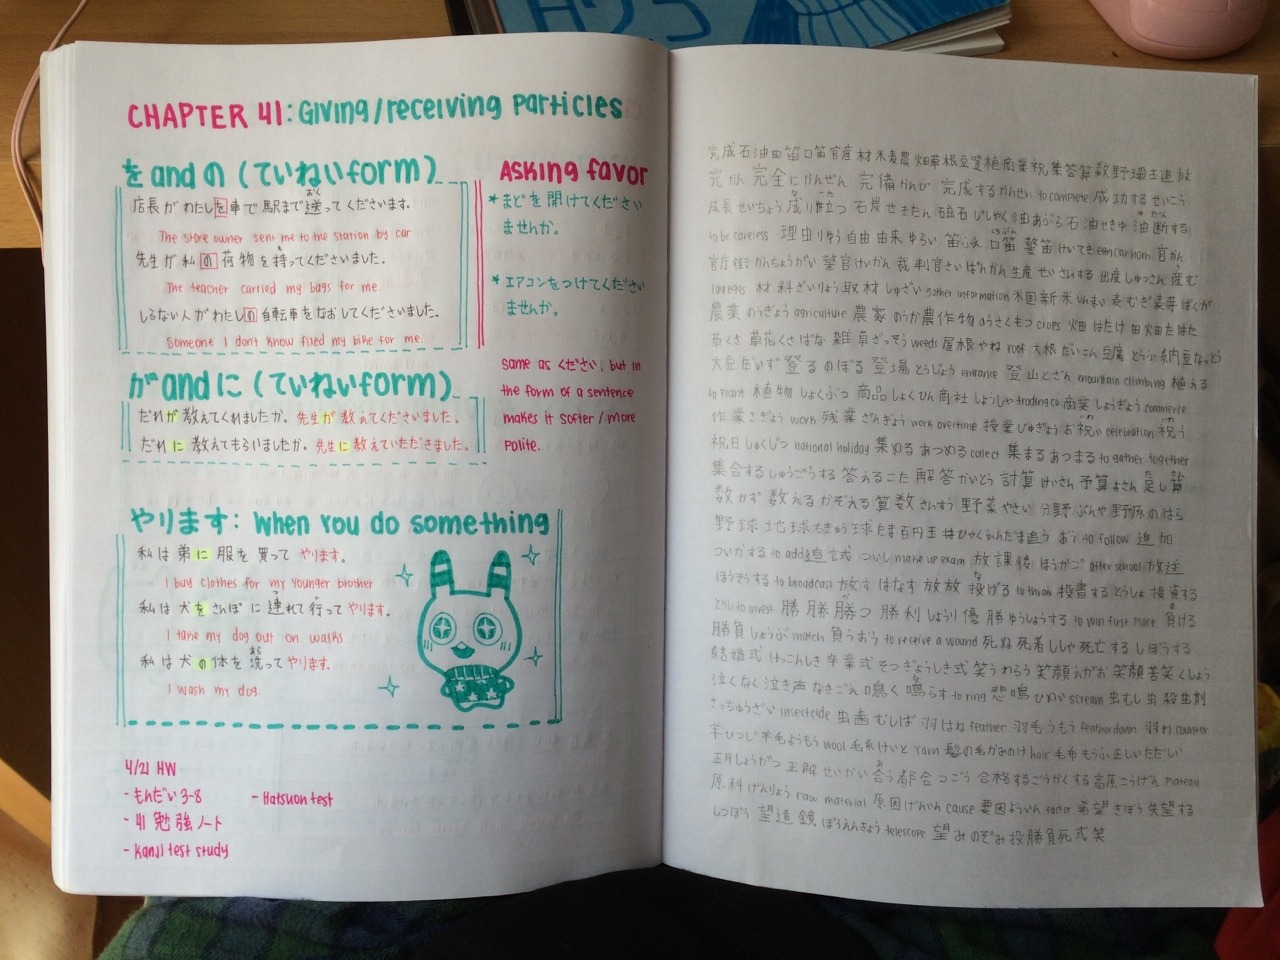 CHAPTER 41: Giving/receiving Particles
をandの(ていねいform)
店長がわたしを車で駅まで送ってくださいます。
おく
The store owner sent me to the station by car
先生が私の荷物を持ってくださいました。
The teacher carried my bags for me.
しらない人がわたしの自転車をなおしてくださいました。
Someone I don't know fixed my bike for me.
がandに(ていねいform)
だれが教えてくれましたか。先生が教えてくださいました。
だれに教えてもらいましたか。先生に教えていただきました。
Asking favor
*まどを開けてください
ませんか。
*エアコンをつけてください
ませんか。
same as ください, but in
the form of a sentence
makes it softer/more
polite.
やります: When you do something
私は弟に服を買ってやります。
I buy clothes for my younger brother
私は犬をさんぽに連れて行ってやります。
I take my dog out on walks
私は犬の体を洗ってやります。
あら
I wash my dog.
4/21 HW
- もんだい3-8
- Hatsuon test
- 41 勉強ノート
- Kanji test study
完成石油由笛口笛官産材米麦農畑草根豆登植商業祝集答算数野球玉追放
完かん 完全にかんぜん 完備かんび 完成するかんせい to complete 成功するせいこう
成長せいちょう 成り立つ 石炭せきたん 磁石じしゃく 油あぶら 石油せきゆ 油断する
to be careless 理由りゆう 自由 由来ゆらい 笛ふえ 口笛 警笛けいてき car horn 官かん
官庁街かんちょうがい 警官けいかん 裁判官さいばんかん 生産せいさんする 出産しゅっさん 産む
lay eggs 材料ざいりょう 取材しゅざい gather information 米国 新米しんまい 麦むぎ 麦芽ばくが
農業のうぎょう agriculture 農家のうか 農作物のうさくもつ crops 畑はたけ 田畑たはた
草くさ 草花くさばな 雑草ざっそう weeds 屋根やね roof 大根だいこん 豆腐とうふ 納豆なっとう
大豆だいず 登るのぼる 登場とうじょう entrance 登山とざん mountain climbing 植える
to plant 植物しょくぶつ 商品しょくひん 商社しょうしゃ trading co 商業しょうぎょう commerce
作業さぎょう work 残業ざんぎょう work overtime 授業じゅぎょう お祝い celebration 祝う
祝日しゅくじつ national holiday 集めるあつめる collect 集まるあつまる to gather together
集合するしゅうごうする 答えるこた 解答かいとう 計算けいさん 予算よさん 足し算
数かず 数えるかぞえる 算数さんすう 野菜やさい 分野ぶんや 野原のはら
野球 地球ちきゅう 球たま 百円玉ひゃくえんだま 追う おう to follow 追加
ついかする to add 追試ついし make up exam 放課後ほうかご after school 放送
ほうそうする to broadcast 放すはなす 放 放 投げる to throw 投書するとうしょ 投資する
とうし to invest 勝 勝 勝つ 勝利しょうり 優勝ゆうしょうする to win first place 負ける
勝負しょうぶ match 負うおう to receive a wound 死ぬ 死者ししゃ 死亡するしぼうする
結婚式けっこんしき 卒業式そつぎょうしき 式 笑うわらう 笑顔えがお 笑顔 苦笑くしょう
泣くなく 泣き声なきごえ 鳴く 鳴らす to ring 悲鳴ひめい scream 虫むし 虫 殺虫剤
さっちゅうざい insecticide 虫歯むしば 羽はね feather 羽毛うもう feather down 羽わ counter
羊ひつじ 羊毛ようもう wool 毛糸けいと yarn 髪の毛かみのけ hair 毛布もうふ 正しいただしい
正月しょうがつ 正解せいかい 合う 都合つごう 合格するごうかくする 高原こうげん plateau
原料げんりょう raw material 原因げんいん cause 要因よういん factor 希望きぼう 失望する
しつぼう 望遠鏡ぼうえんきょう telescope 望みのぞみ 投勝負死式笑